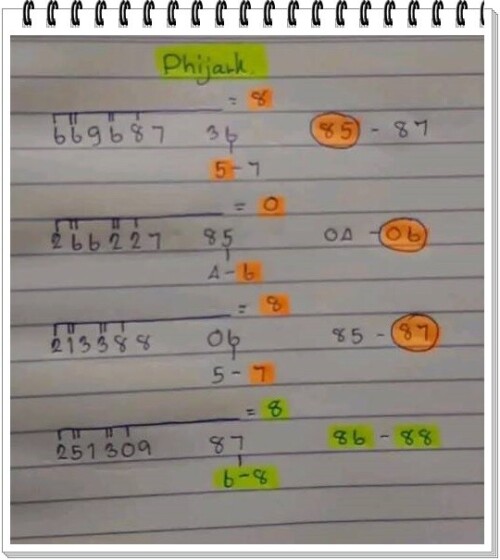 Phijark.
= 8
669687 36 85 - 87
5 - 7
= 0
266227 85 04 - 06
4 - 6
= 8
213388 06 85 - 87
5 - 7
= 8
251309 87 86 - 88
6 - 8